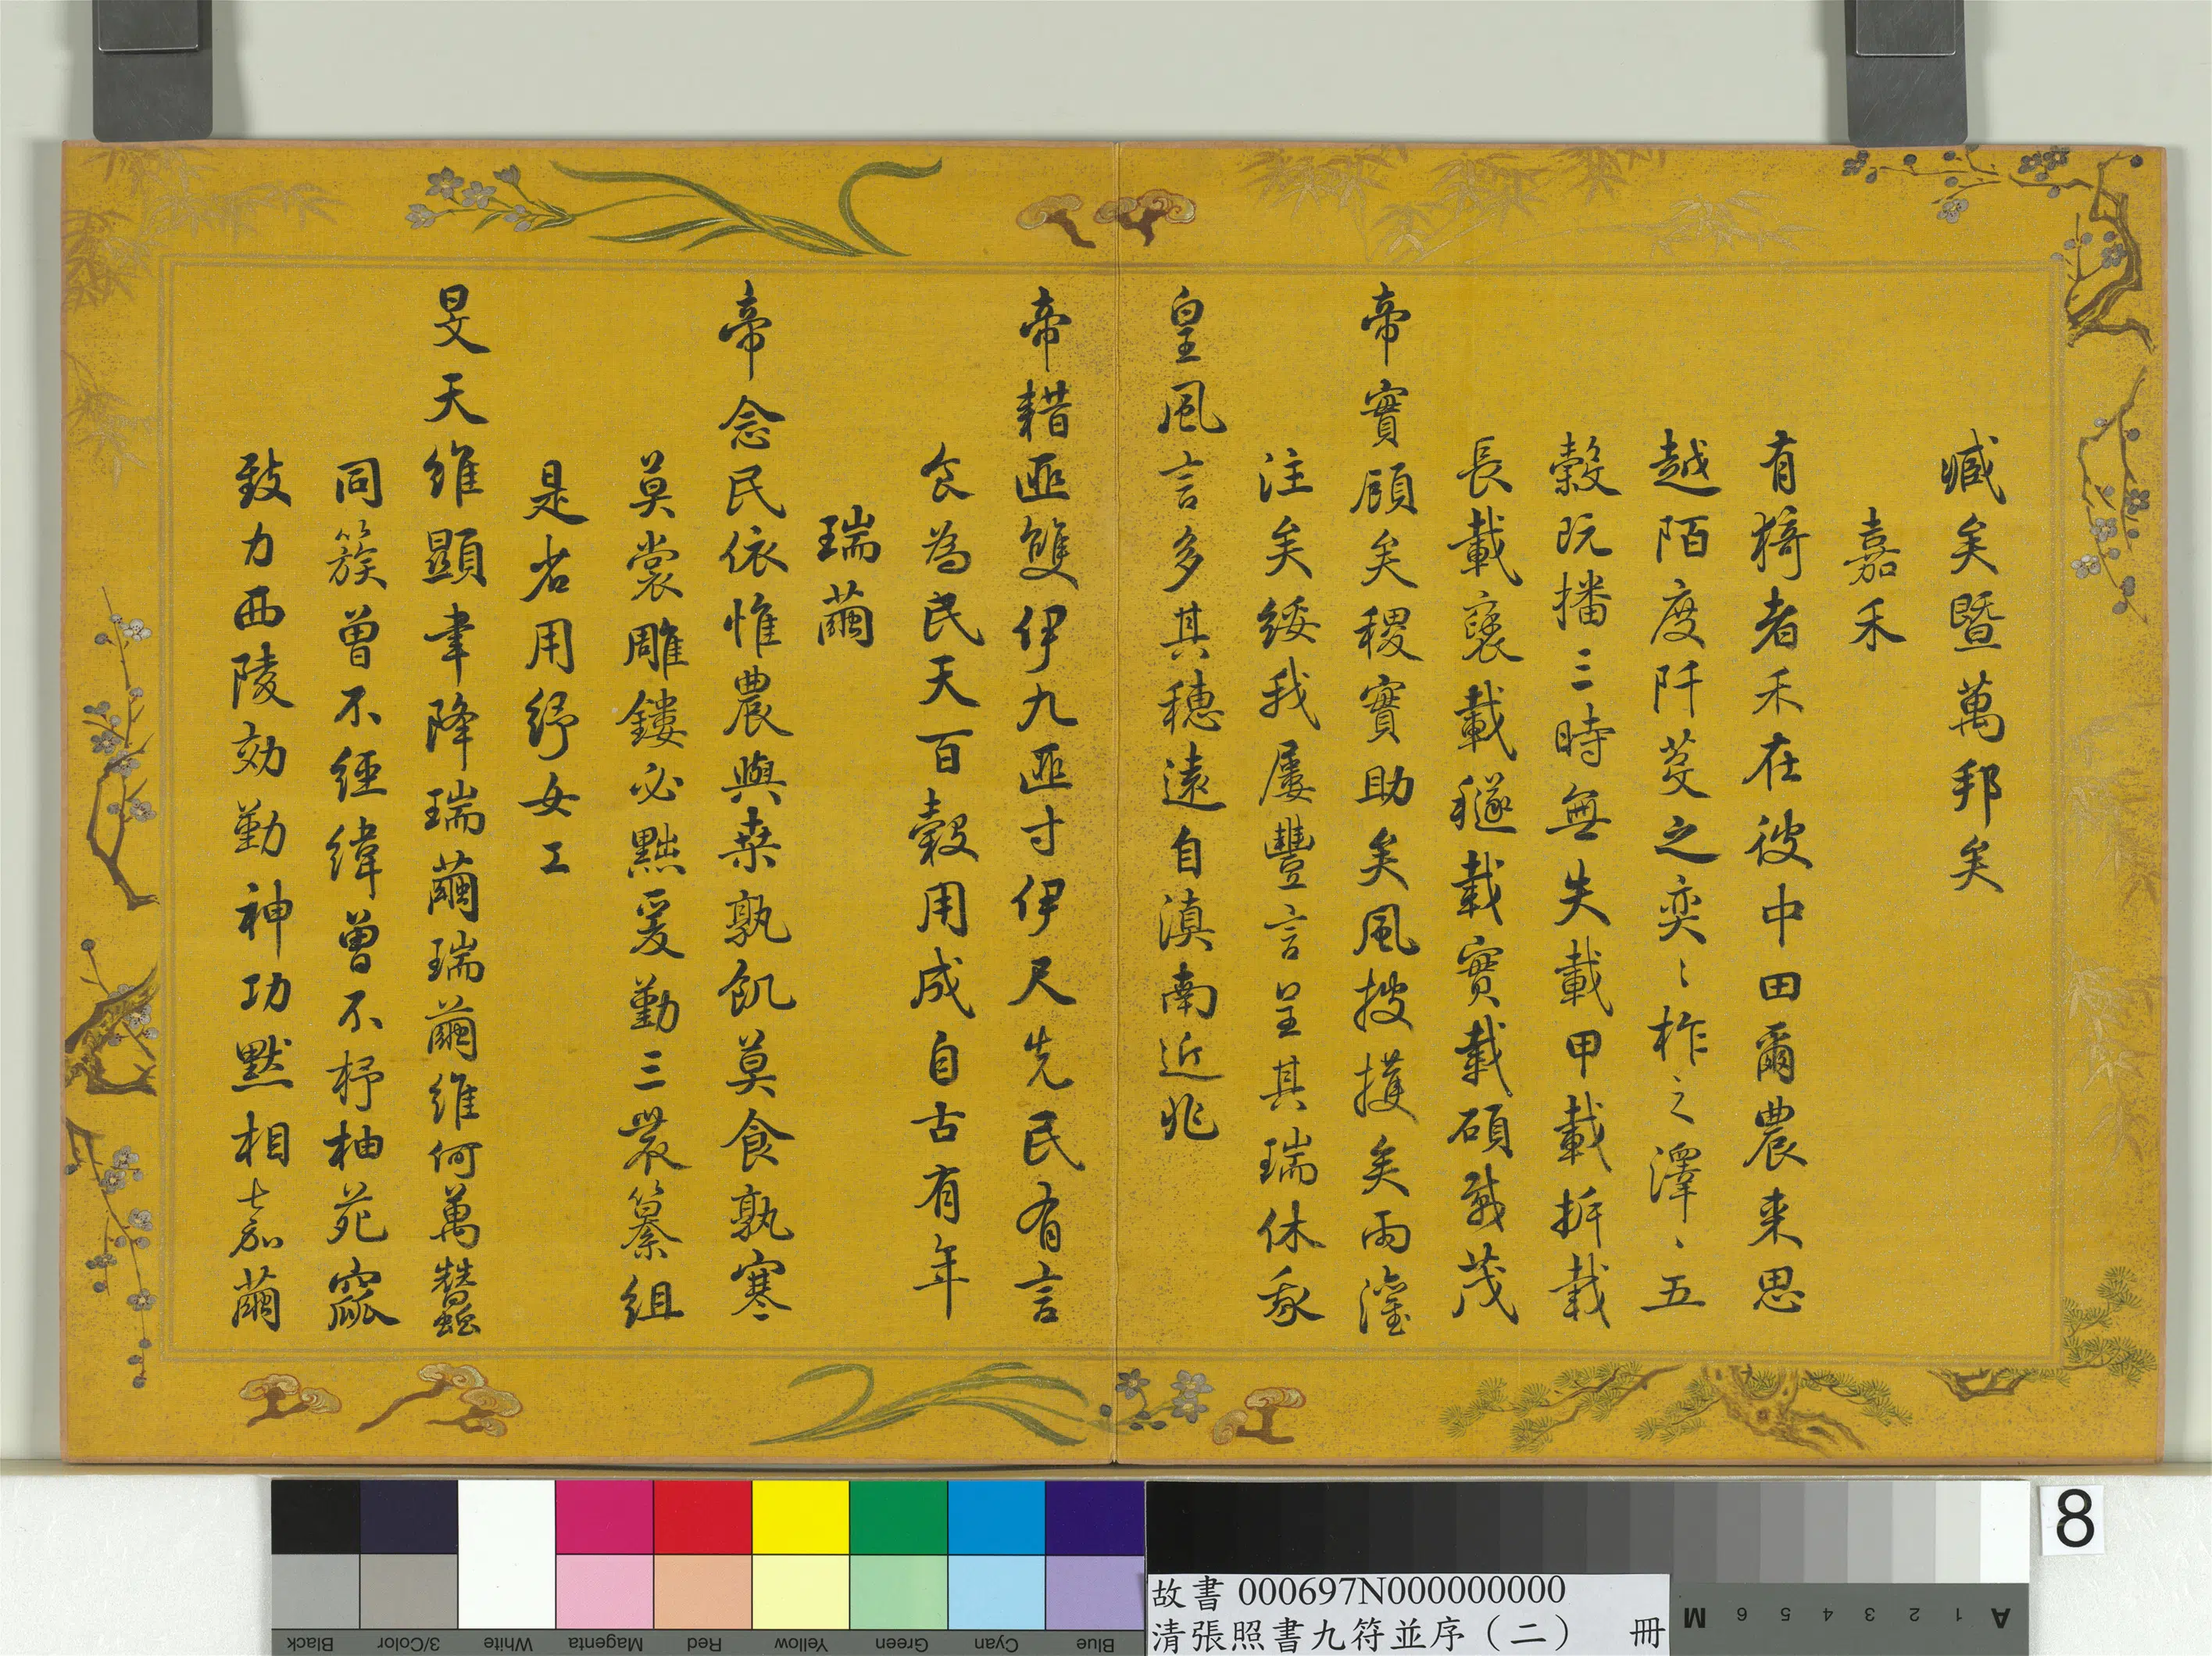 臧矣暨萬邦矣
嘉禾
有猗者禾在彼中田爾農来思
越陌度阡芟之奕〻柞之澤〻五
穀既播三時無失載甲載拆載
長載襃載穟載實載碩載茂
帝實顧矣稷實助矣風搜擭矣雨灌
注矣綏我屢豐言呈其瑞休豖
皇風言多其穗遠自滇南近兆
帝耤匪雙伊九匪寸伊尺先民有言
食為民天百穀用成自古有年
瑞繭
帝念民依惟農與桒孰飢莫食孰寒
莫裳雕鏤必黜爰勤三農纂組
是省用紓女工
旻天維顯聿降瑞繭瑞繭維何萬蠶
同簇曾不經緯曾不杼柚苑窳
致力西陵効勤神功默相嘉繭
故書 000697N000000000
清張照書九符並序（二） 冊
8
Black 3/Color White Magenta Red Yellow Green Cyan Blue
M 6 5 4 3 2 1 A